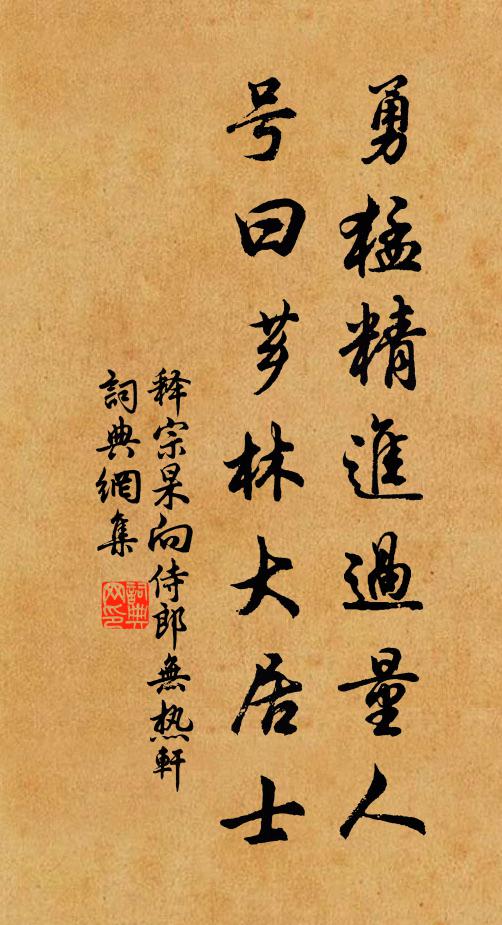 勇猛精進過量人
号曰芗林大居士
释宗杲向侍郎無热軒
詞典網集
詞典网印